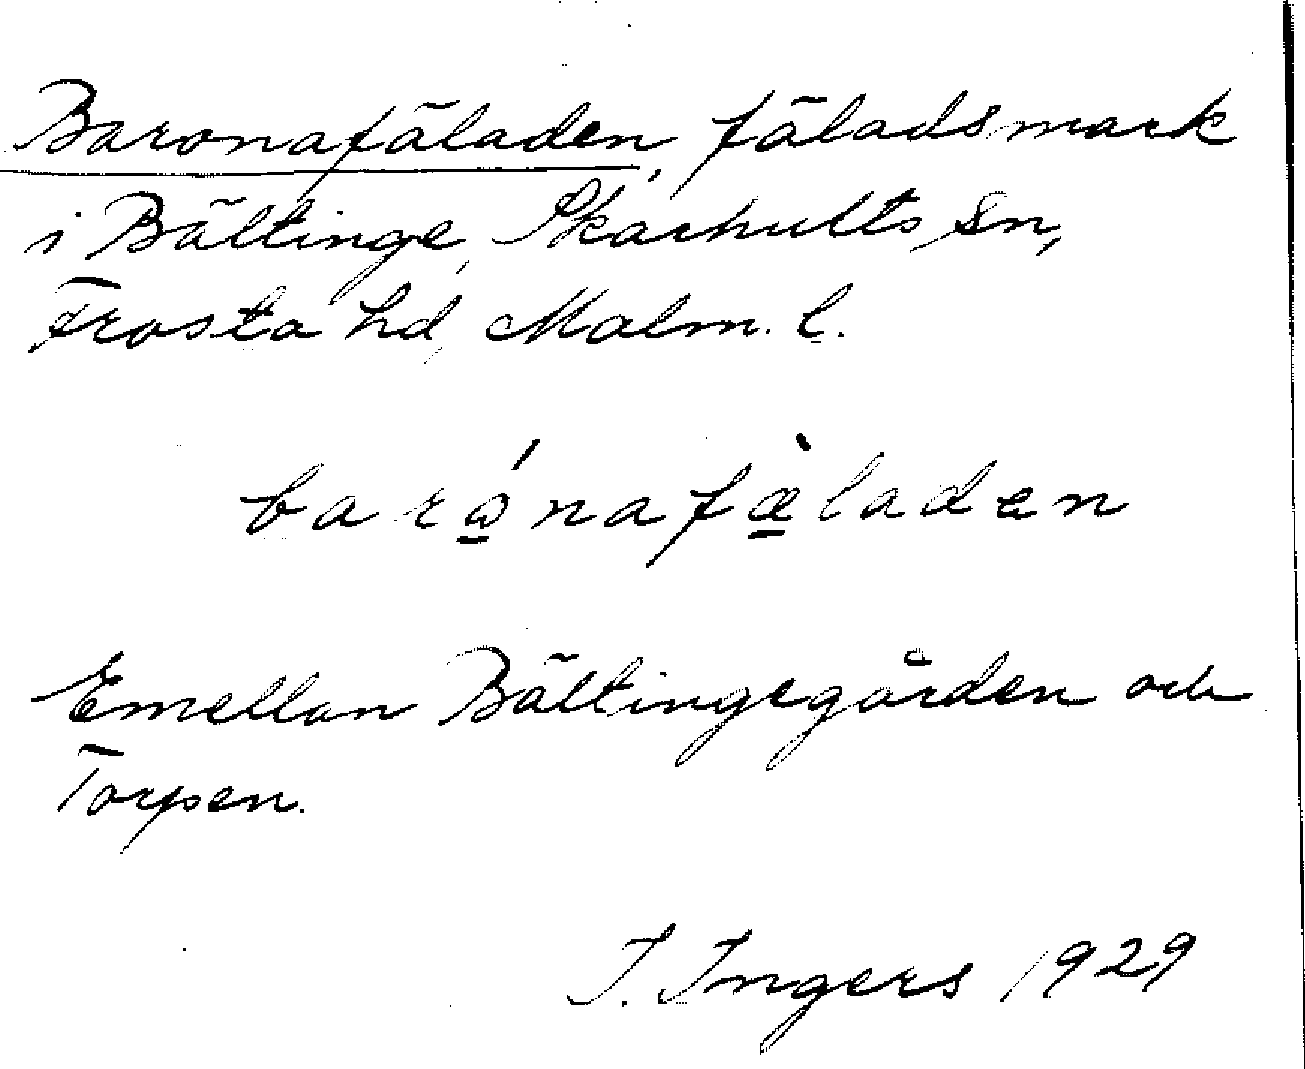 Baronafäladen, fäladsmark
i Bältinge, Skarhults sn,
Frosta hd, Malm. l.
barǫ́nafæ̱̀laden
Emellan Bältingegården och
Torpen.
I. Ingers 1929